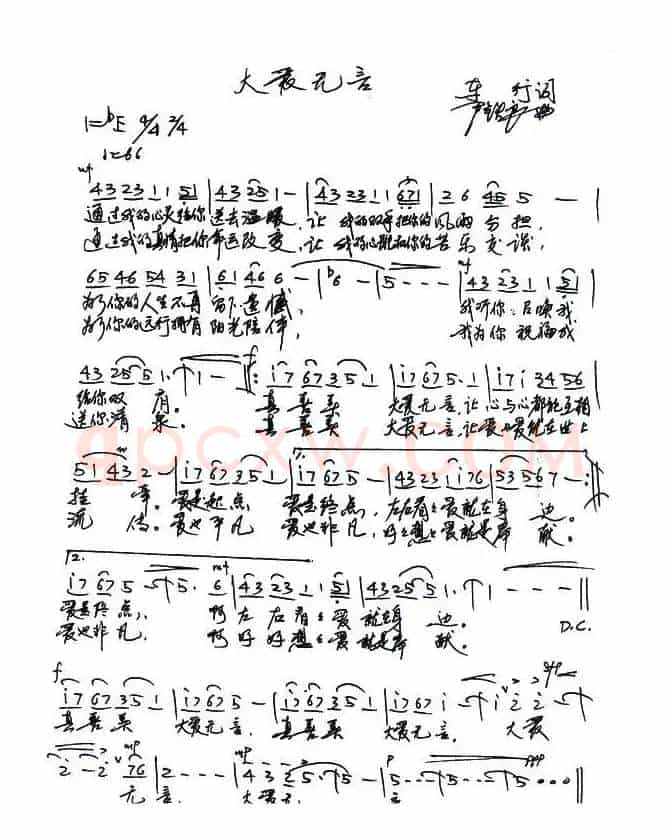 大爱无言
车行词
1=bE 4/4 2/4
♩=66
mf
4 3 2 3 1 1 5 | 4 3 2 5 1 - | 4 3 2 3 1 1 6 7 1 | 2 6 4 5 5 - |
通过我的心灵给你送去温暖,让我的双手把你的风雨分担,
通过我的真情把你命运改变,让我的心跳和你的苦乐交谈,
6 5 4 6 5 4 3 1 | 6 1 4 6 6 - | b6 - | 5 - - - | 4 3 2 3 1 1 5 |
mf
为了你的人生不再留下遗憾, 我听你召唤我
为了你的远行拥有阳光陪伴, 我为你祝福我
4 3 2 5 5 1 . | 1 - - f : i 7 6 7 3 5 1 | i 7 6 7 5 . 1 | i 7 i 3 4 5 6 |
给你双肩。 真善美 大爱无言,让心与心都能互相
送你清泉。 真善美 大爱无言,让爱与爱能在世上
5 1 4 3 2 - | i 7 6 7 3 5 1 | 1. i 7 6 7 5 - | 4 3 2 3 1 i 7 6 | 5 3 5 6 7 - :
挂牵。爱是起点 爱是终点,左右看看爱就在身边。
流传。爱也平凡 爱也非凡,好好想想爱就是奉献。
2.
i 7 6 7 5 - 5 . 6 | 4 3 2 3 1 1 5 | 4 3 2 5 5 1 . | 1 - - - ||
mf
爱是终点, 啊左右看看爱就在身边。 D.C.
爱也非凡, 啊好好想想爱就是奉献。
f
i 7 6 7 3 5 1 | i 7 6 7 5 - | i 7 6 7 3 5 1 | i 7 6 7 i - | i 2 2 -
真善美 大爱无言, 真善美 大爱无言, 大爱
2 - 2 7 6 | 2 - - - | 4 3 2 5 5 - | 5 - - - 5 - - 5 . . . ||
mp mp p ppp
无言, 大爱无言
gpcxw.com